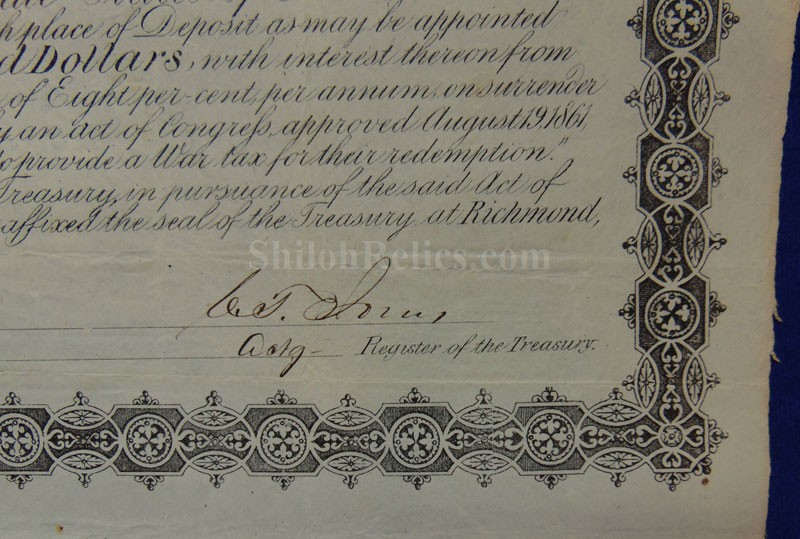 h place of Deposit as may be appointed
d Dollars, with interest thereon from
of Eight per-cent, per annum, on surrender
y an act of Congress, approved August 19, 1861,
o provide a War tax for their redemption."
Treasury, in pursuance of the said Act of
affixed the seal of the Treasury, at Richmond,
ShilohRelics.com
C. T. Jones
Actg - Register of the Treasury.